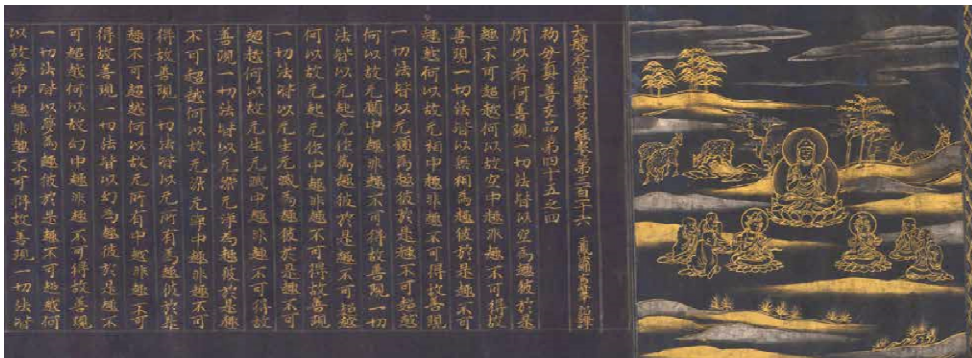 大般若波羅蜜多經卷第三百十六
初分真善友品第四十五之四 三藏法師玄奘奉 詔譯
所以者何善現一切法皆以空為趣彼於是
趣不可超越何以故空中趣非趣不可得故
善現一切法皆以無相為趣彼於是趣不可
超越何以故无相中趣非趣不可得故善現
一切法皆以无願為趣彼於是趣不可超越
何以故无願中趣非趣不可得故善現一切
法皆以无起无作為趣彼於是趣不可超越
何以故无起无作中趣非趣不可得故善現
一切法皆以无生无滅為趣彼於是趣不可
超越何以故无生无滅中趣非趣不可得故
善現一切法皆以无染无淨為趣彼於是趣
不可超越何以故无染无淨中趣非趣不可
得故善現一切法皆以无所有為趣彼於是
趣不可超越何以故无所有中趣非趣不可
得故善現一切法皆以幻為趣彼於是趣不
可超越何以故幻中趣非趣不可得故善現
一切法皆以夢為趣彼於是趣不可超越何
以故夢中趣非趣不可得故善現一切法皆